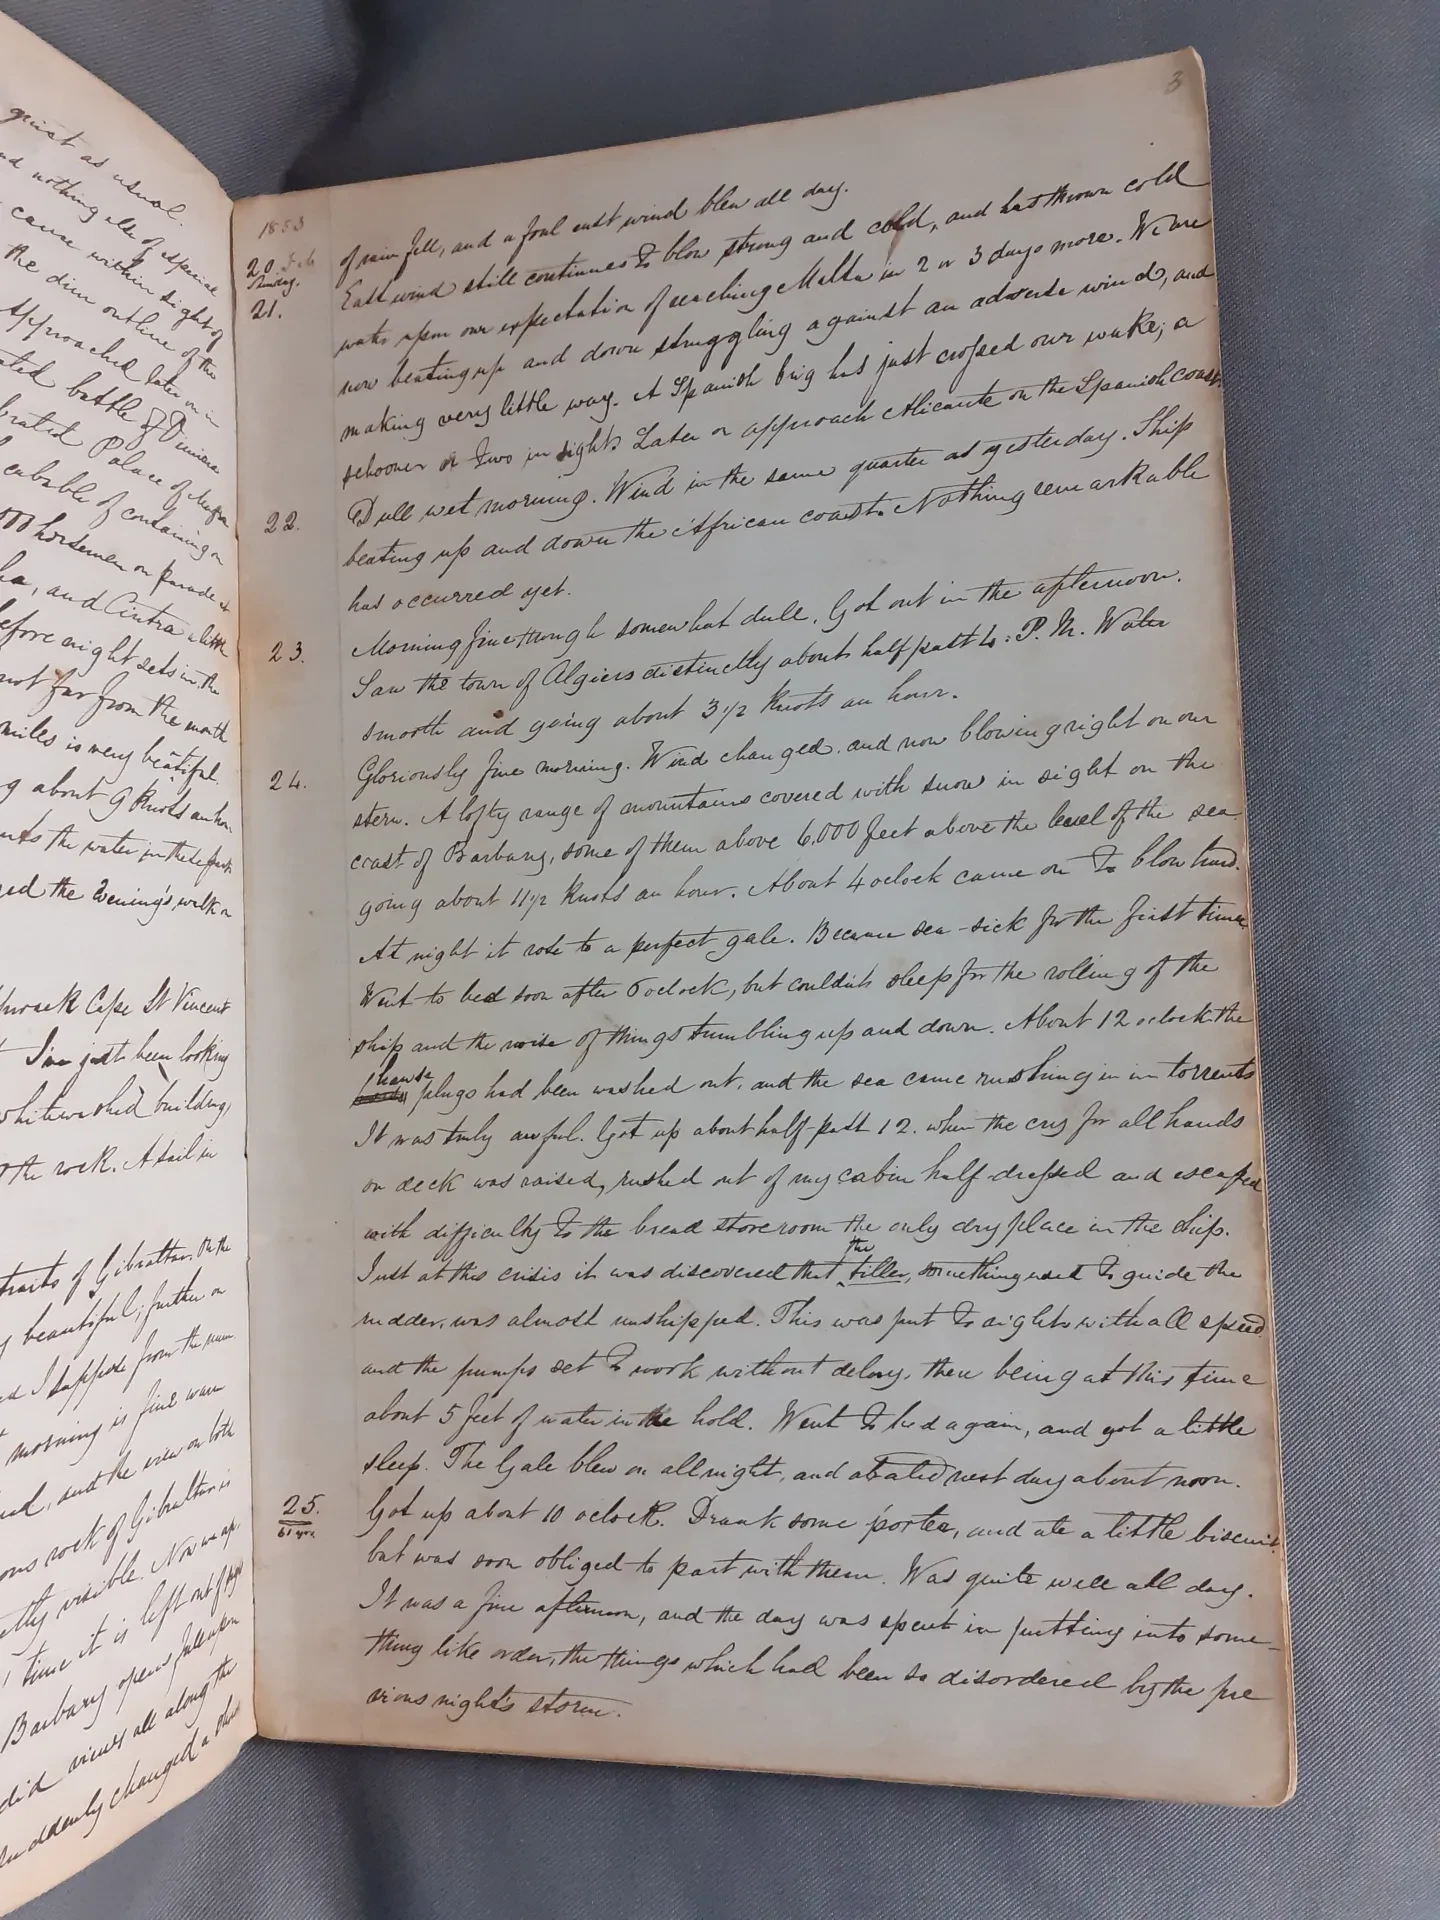 quiet as usual.
nd nothing else of especial
cause within sight of
the dim outline of the
Approached later on in
ated battle of Vimiera
brated Palace of Mafra
capable of containing on
000 horsemen on parade at
, and Cintra a little
efore night sets in. the
not far from the mouth
miles is very beautiful.
g about 9 Knots an hou
nts the water in these parts
yed the Evening's walk on
proach Cape St Vincent
I've just been looking
whitewashed building,
the rock. A sail in
traits of Gibraltar. On the
y beautiful; further on
ed I suppose from the num
morning is fine warm
ed, and the view on both
ous rock of Gibraltar is
ctly visible. Now we ap
time it is left out of sight
Barbary opens full upon
did views all along the
suddenly changed a short
3
1853
of rain fell, and a foul east wind blew all day.
20 Feb East wind still continues to blow strong and cold, and has thrown cold
Sunday.
21. water upon our expectation of reaching Malta in 2 or 3 days more. We are
now beating up and down struggling against an adverse wind, and
making very little way. A Spanish brig has just crossed our wake; a
schooner or two in sight. Later on approach Alicante on the Spanish coast.
22. Dull wet morning. Wind in the same quarter as yesterday. Ship
beating up and down the African coast. Nothing remarkable
has occurred yet.
23. Morning fine though somewhat dull. Got out in the afternoon.
Saw the town of Algiers distinctly about half past 4. P.M. Water
smooth and going about 3 1/2 Knots an hour.
24. Gloriously fine morning. Wind changed. and now blowing right on our
stern. A lofty range of mountains covered with snow in sight on the
coast of Barbary, some of them above 6,000 feet above the level of the sea.
going about 11 1/2 Knots an hour. About 4 oclock came on to blow hard.
At night it rose to a perfect gale. Became sea-sick for the first time.
Went to bed soon after 6 oclock, but couldn't sleep for the rolling of the
ship and the noise of things tumbling up and down. About 12 oclock the
hawse plugs had been washed out, and the sea came rushing in in torrents
It was truly awful. Got up about half-past 12. when the cry for all hands
on deck was raised, rushed out of my cabin half-dressed and escaped
with difficulty to the bread store room the only dry place in the ship.
Just at this crisis it was discovered that the tiller, something used to guide the
rudder, was almost unshipped. This was put to rights with all speed
and the pumps set to work without delay, there being at this time
about 5 feet of water in the hold. Went to bed again, and got a little
sleep. The Gale blew on all night, and abated next day about noon.
25. Got up about 10 oclock. Drank some porter, and ate a little biscuit.
but was soon obliged to part with them. Was quite well all day.
It was a fine afternoon, and the day was spent in putting into some-
thing like order, the things which had been so disordered by the pre
vious night's storm.